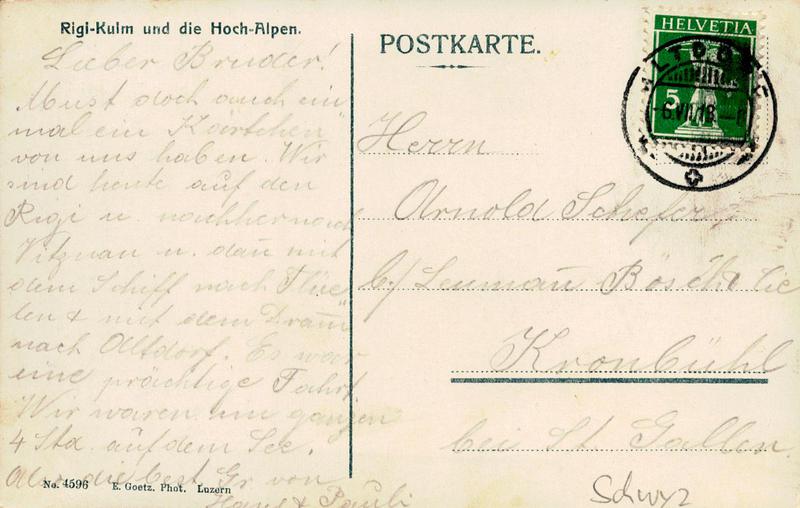 Rigi-Kulm und die Hoch-Alpen.
Lieber Bruder!
Must doch auch ein
mal ein Kärtchen
von uns haben. Wir
sind heute auf den
Rigi u. nachher nach
Vitznau u. dañ mit
dem Schiff nach Flüe
len & mit dem Tram
nach Altdorf. Es war
eine prächtige Fahrt
Wir waren im ganzen
4 Std. auf dem See.
Also die best Gr von
Hans & Pauli
No. 4596 E. Goetz. Phot. Luzern
POSTKARTE.
HELVETIA
5
ALTDORF
6.VII.13.
Herrn
Arnold Schefer
b/ Lenmañ Bösch & Cie
Kronbühl
bei St. Gallen
Schwyz